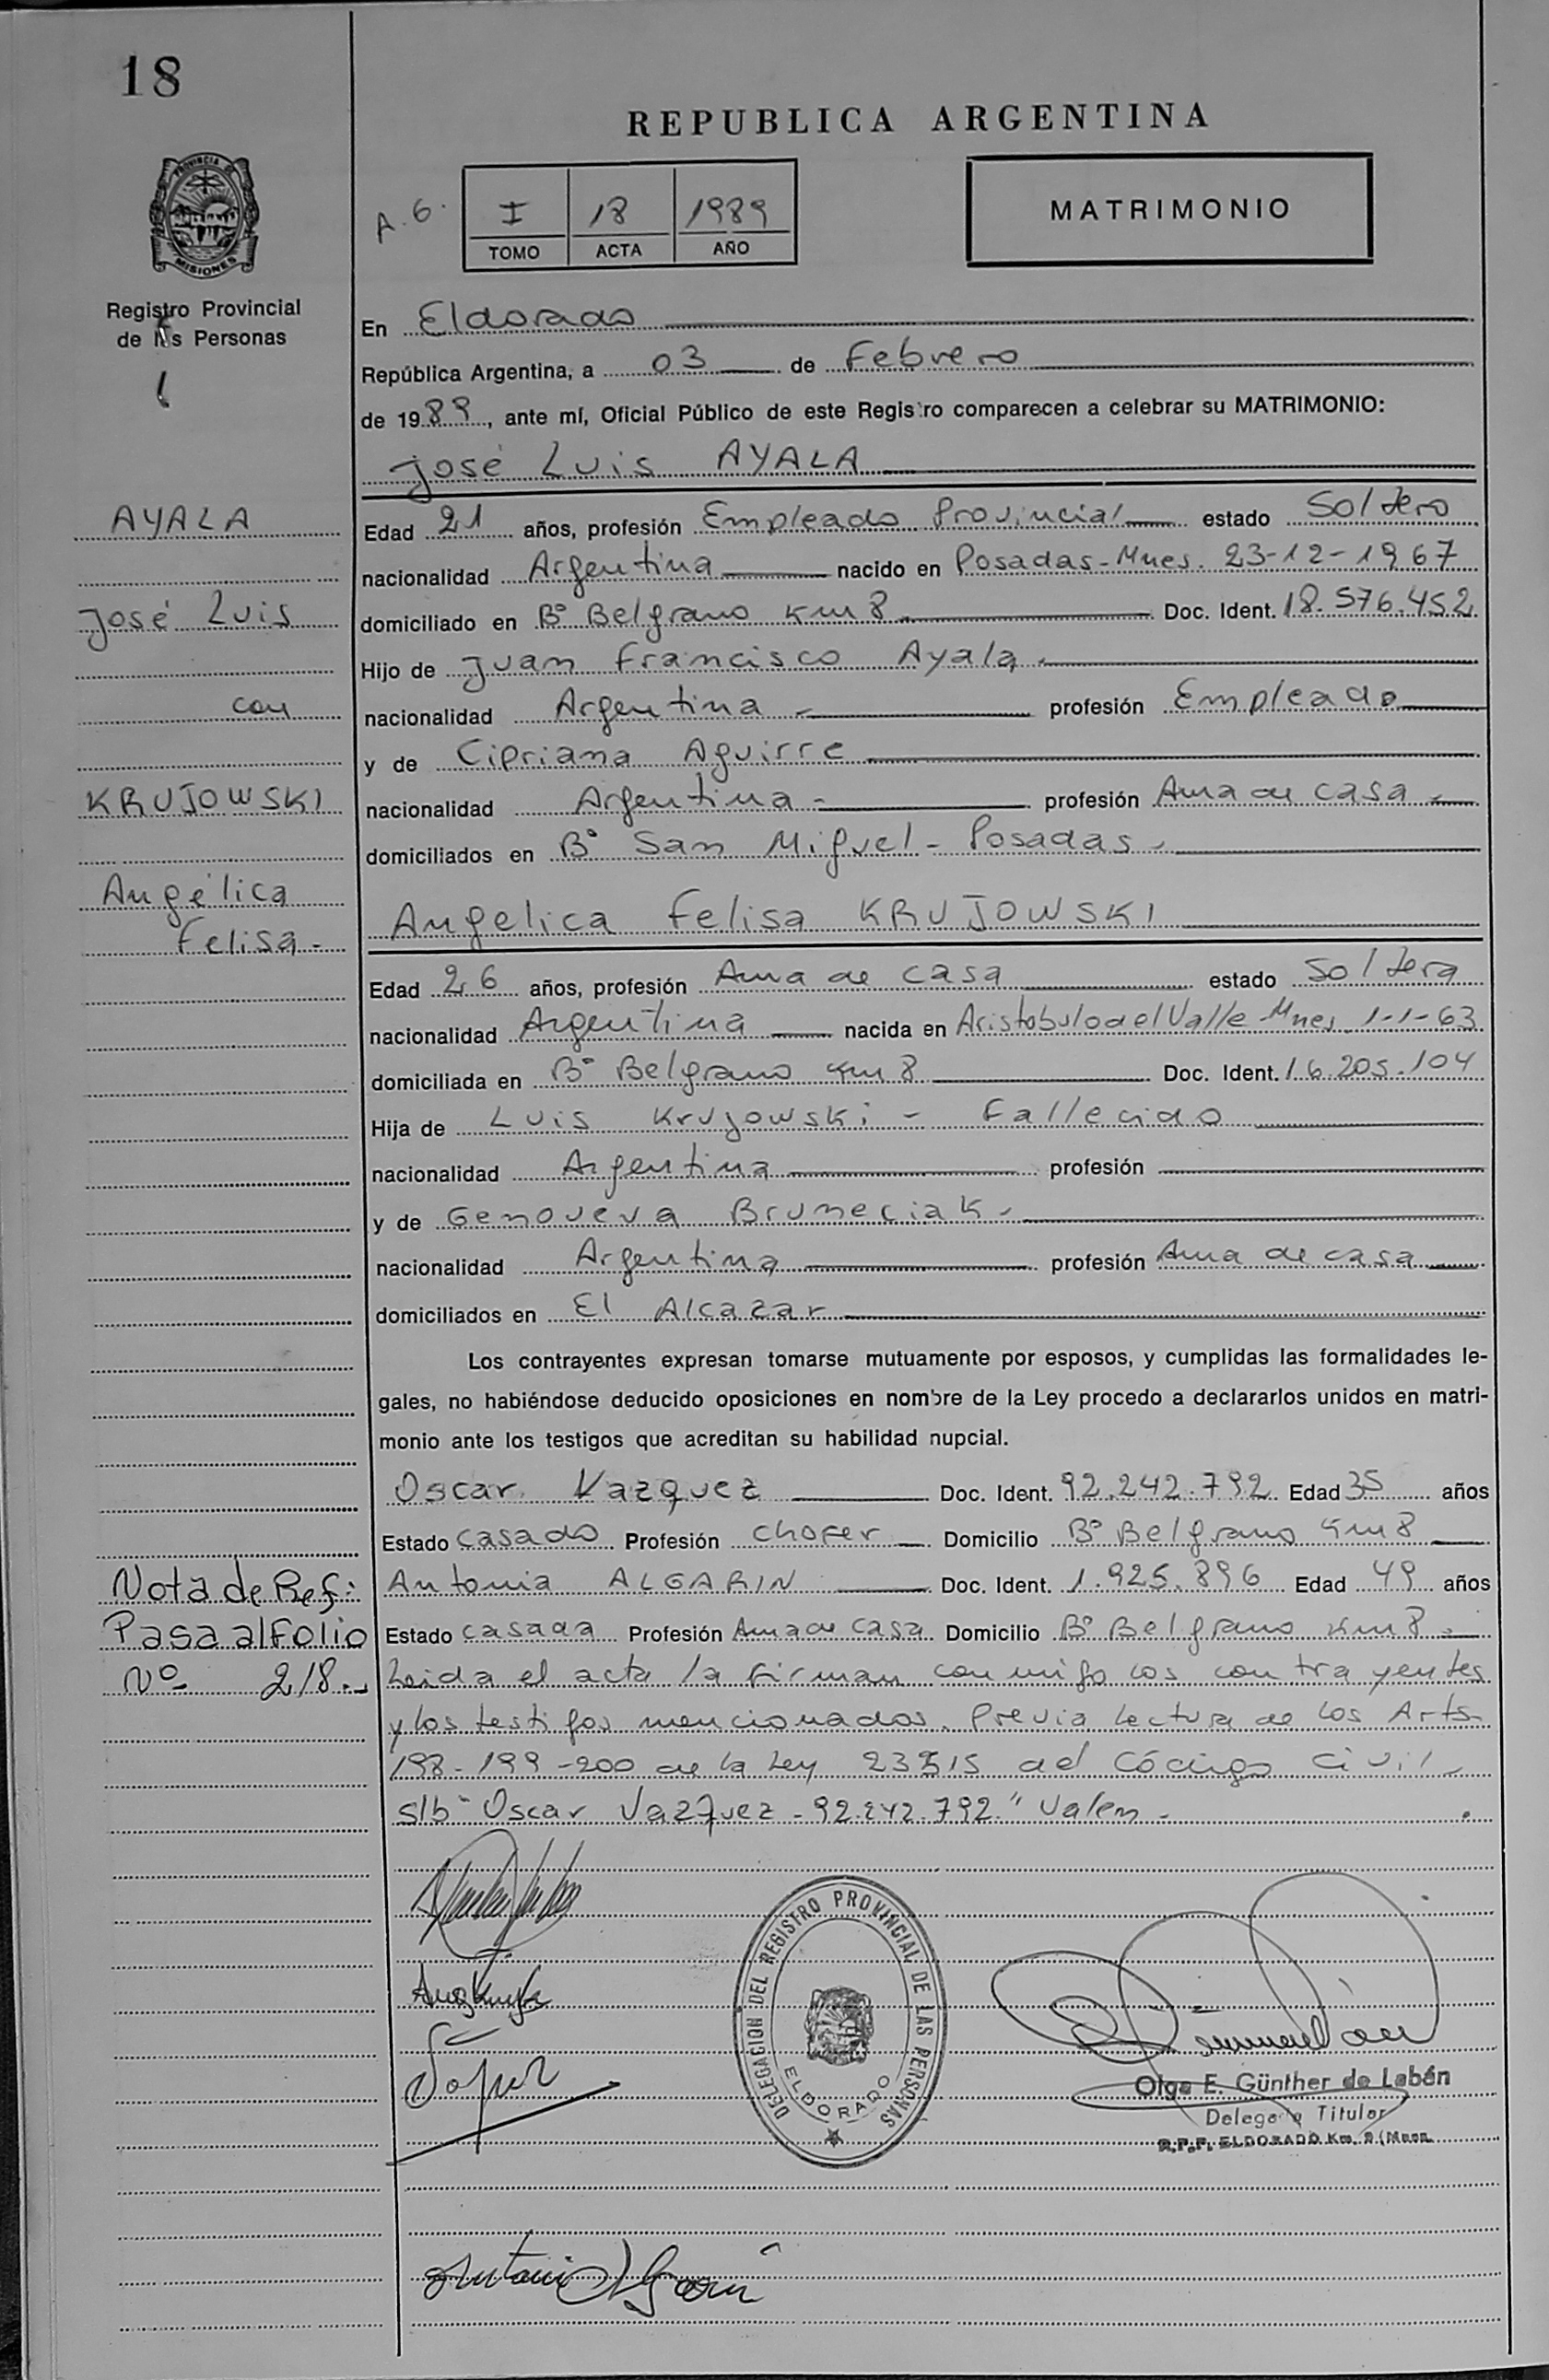 18
REPUBLICA ARGENTINA
PROVINCIA D
MISIONES
Registro Provincial
de las Personas
A.G.
I 18 1989
TOMO ACTA AÑO
MATRIMONIO
En Eldorado
República Argentina, a 03 de Febrero
de 1989, ante mí, Oficial Público de este Registro comparecen a celebrar su MATRIMONIO:
José Luis AYALA
AYALA
Edad 21 años, profesión Empleado Provincial estado Soltero
nacionalidad Argentina nacido en Posadas-Mnes. 23-12-1967
José Luis
domiciliado en B° Belgrano Km 8 Doc. Ident. 18.576.452
Hijo de Juan Francisco Ayala
con
nacionalidad Argentina - profesión Empleado
y de Cipriana Aguirre
KRUJOWSKI
nacionalidad Argentina - profesión Ama de casa -
domiciliados en B° San Miguel - Posadas -
Angélica
Felisa-
Angelica Felisa KRUJOWSKI
Edad 26 años, profesión Ama de casa estado Soltera
nacionalidad Argentina nacida en Aristobulo del Valle Mnes. 1-1-63
domiciliada en B° Belgrano Km 8 Doc. Ident. 16.205.104
Hija de Luis Krujowski - Fallecido
nacionalidad Argentina profesión
y de Genoveva Brumeciak -
nacionalidad Argentina profesión Ama de casa
domiciliados en El Alcazar
Los contrayentes expresan tomarse mutuamente por esposos, y cumplidas las formalidades le-
gales, no habiéndose deducido oposiciones en nombre de la Ley procedo a declararlos unidos en matri-
monio ante los testigos que acreditan su habilidad nupcial.
Oscar Vazquez Doc. Ident. 92.242.792 Edad 35 años
Estado Casado Profesión Chofer Domicilio B° Belgrano Km 8
Nota de Ref:
Pasa al Folio
Nº 218.-
Antonia ALGARIN Doc. Ident. 1.925.896 Edad 49 años
Estado Casada Profesión Ama de casa Domicilio B° Belgrano Km 8 -
Leida el acta la firman conmigo los contrayentes
y los testigos mencionados. Previa lectura de los Arts-
198-199-200 de la Ley 23515 del Código Civil -
s/b "Oscar Vazquez - 92.242.792." Valen -
DELEGACION DEL REGISTRO PROVINCIAL DE LAS PERSONAS
ELDORADO
Olga E. Günther de Labán
Delegada Titular
R.P.P. ELDORADO Km. 9 (Mnes.